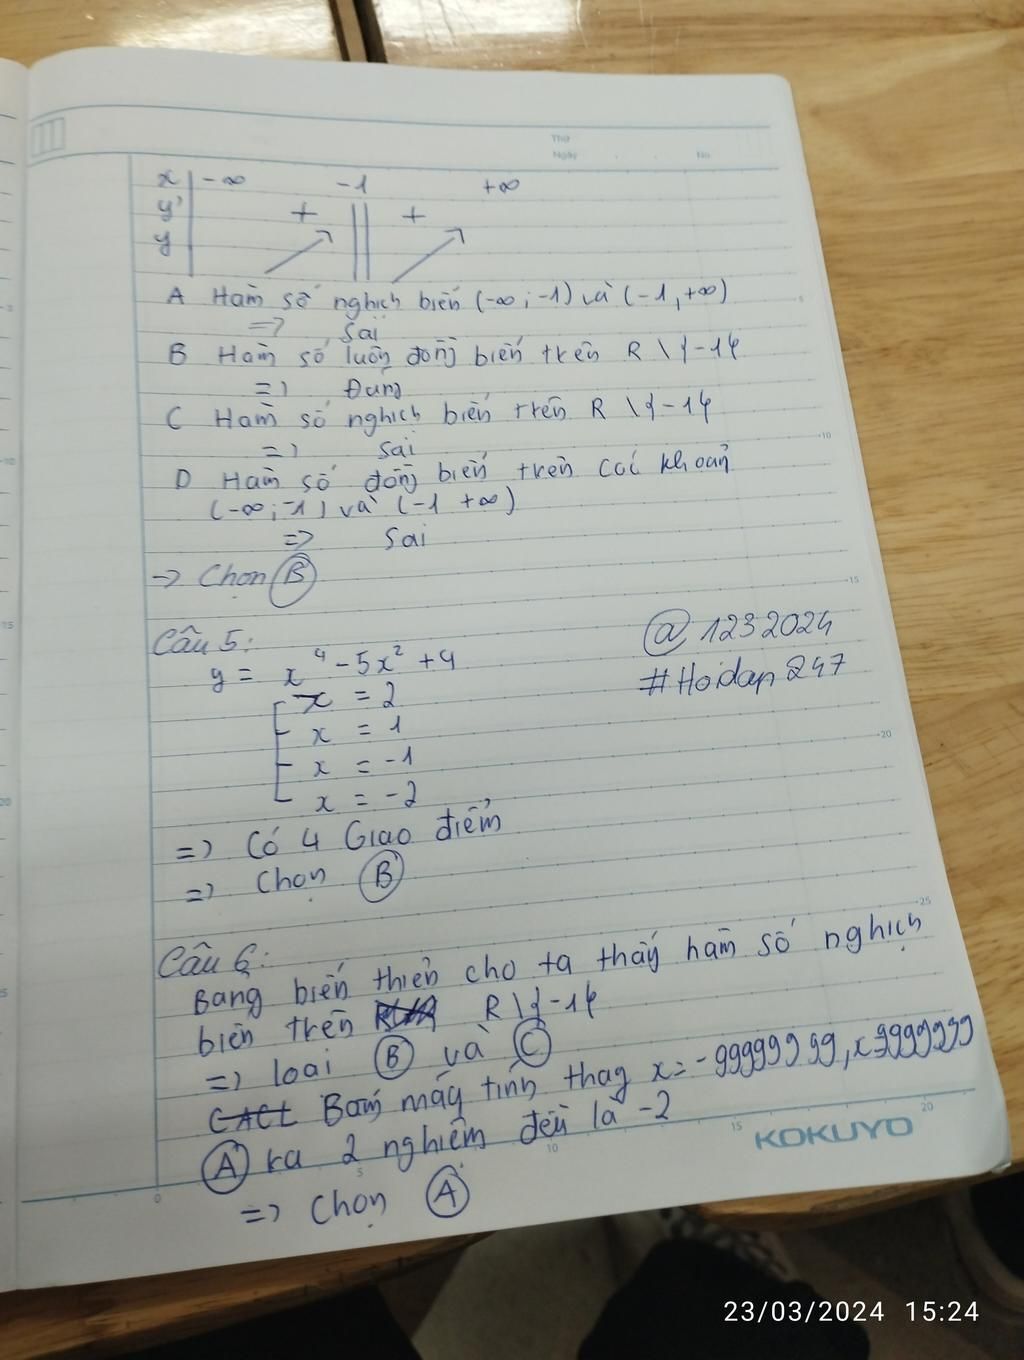 Thứ
Ngày No
x -∞ -1 +∞
y' + +
y
A Hàm số nghịch biến (-∞; -1) và (-1, +∞)
=> Sai
B Hàm số luôn đồng biến trên R \ {-1}
=> Đúng
C Hàm số nghịch biến trên R \ {-1}
=> Sai
D Hàm số đồng biến trên các khoản
(-∞; -1) và (-1 +∞)
=> Sai
-> Chọn B
Câu 5:
@1232024
y = x⁴ - 5x² + 4
#Hoidap247
x = 2
x = 1
x = -1
x = -2
=> Có 4 Giao điểm
=> Chọn B
Câu 6:
Bảng biến thiên cho ta thấy hàm số nghịch
biến trên R \ {-1}
=> loại B và C
Bấm máy tính thay x = -99999999, x=9999999
A ra 2 nghiệm đều là -2
=> Chọn A
KOKUYO
5 10 15 20 25
0 5 10 15 20
23/03/2024 15:24